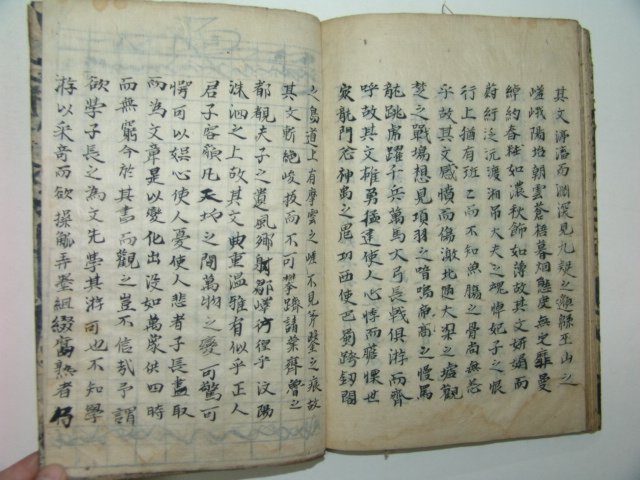 其文渟滀而淵深見九疑之芊綿巫山之
嵯峨陽坮朝雲蒼梧暮烟態度無定靡曼
綽約春粧如濃秋飾如薄故其文妍媚而
蔚紆泛沅渡湘吊大夫之魂悼妃子之恨
竹上猶有班〻而不知魚腸之骨尚無恙
乎故其文感憤而傷激北過大梁之墟觀
楚之戰場想見項羽之喑嗚高帝之慢罵
龍跳虎躍千兵萬馬大弓長戟俱游而齊
呼故其文雄勇猛健使人心悸而膽慄世
家龍門念神禹之功西使巴蜀跨劒閣
之鳥道上有摩雲之崖不見斧鑿之痕故
其文斬絶峻拔而不可攀躋講業齊魯之
都覩夫子之遺風鄉射鄒嶧彷徨乎汶陽
洙泗之上故其文典重温雅有似乎正人
君子容皃凡天地之間萬物之變可驚可
愕可以娛心使人憂使人悲者子長盡取
而為文章是以變化出没如萬象供四時
而無窮今於其書而觀之豈不信哉予謂
欲學子長之為文先學其游可也不知學
游以采奇而欲操觚弄墨組綴腐熟者乃